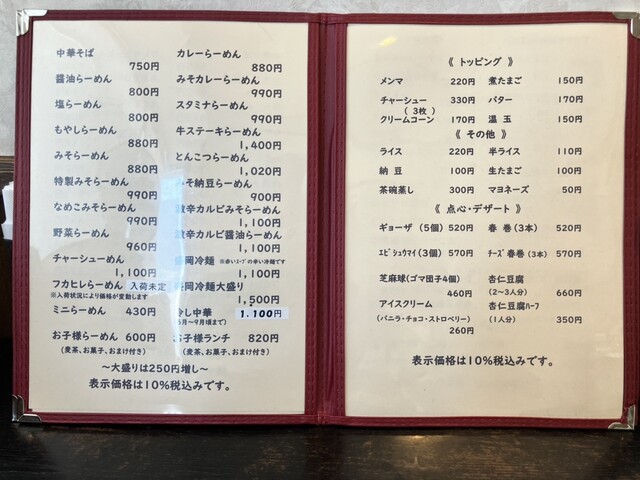 中華そば
750円
醤油らーめん
800円
塩らーめん
800円
もやしらーめん
880円
みそらーめん
880円
特製みそらーめん
990円
なめこみそらーめん
990円
野菜らーめん
960円
チャーシューめん
1,100円
フカヒレらーめん 入荷未定
※入荷状況により価格が変動します
ミニらーめん 430円
お子様らーめん 600円
(麦茶、お菓子、おまけ付き)
カレーらーめん
880円
みそカレーらーめん
990円
スタミナらーめん
990円
牛ステーキらーめん
1,400円
とんこつらーめん
1,020円
みそ納豆らーめん
900円
激辛カルビみそらーめん
1,100円
激辛カルビ醤油らーめん
1,100円
盛岡冷麺 ※赤いスープの辛い冷麺です
1,100円
盛岡冷麺大盛り
1,500円
冷し中華 1.100円
月～9月頃まで)
お子様ランチ 820円
(麦茶、お菓子、おまけ付き)
～大盛りは250円増し～
表示価格は10%税込みです。
《 トッピング 》
メンマ 220円 煮たまご 150円
チャーシュー 330円 バター 170円
( 3枚 )
クリームコーン 170円 温玉 150円
《 その他 》
ライス 220円 半ライス 110円
納豆 100円 生たまご 100円
茶碗蒸し 300円 マヨネーズ 50円
《 点心・デザート 》
ギョーザ (5個) 520円 春巻(3本) 520円
エビシュウマイ(3個) 570円 チーズ春巻(3本) 570円
芝麻球(ゴマ団子4個) 杏仁豆腐
460円 (2～3人分) 660円
アイスクリーム 杏仁豆腐ハーフ
(バニラ・チョコ・ストロベリー) (1人分) 350円
260円
表示価格は10%税込みです。